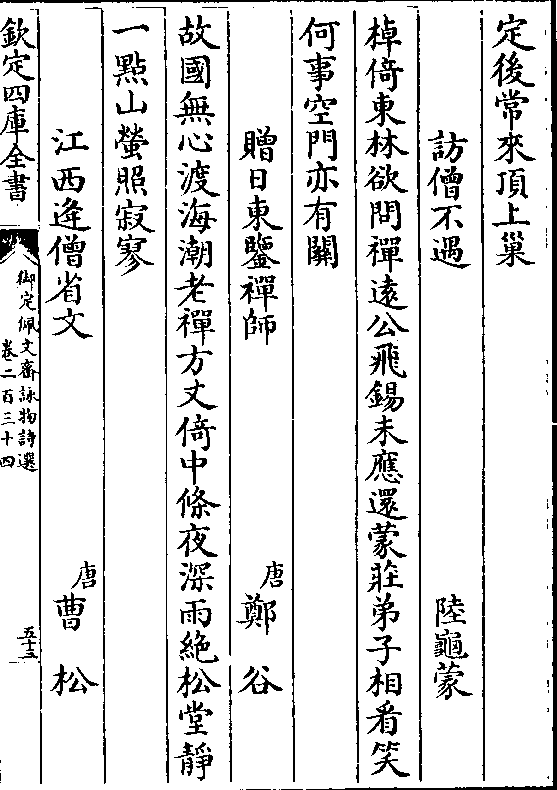 定後常來頂上巢
訪僧不遇 陸龜蒙
棹倚東林欲問禪遠公飛錫未應還蒙莊弟子相看笑
何事空門亦有關
贈日東鑒禪師 唐 鄭谷
故國無心渡海潮老禪方丈倚中條夜深雨絶松堂靜
一點山螢照寂寥
江西逢僧省文 唐 曹松
欽定四庫全書
御定佩文齋詠物詩選
卷二百三十四
五十三